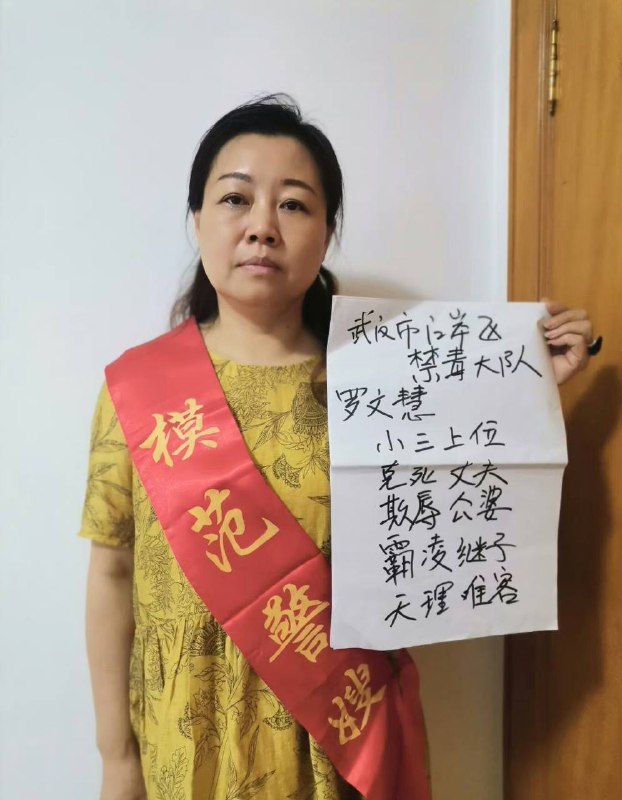 模范警嫂
武汉市江岸区
禁毒大队
罗文慧
小三上位
克死丈夫
欺辱公婆
霸凌继子
天理难容